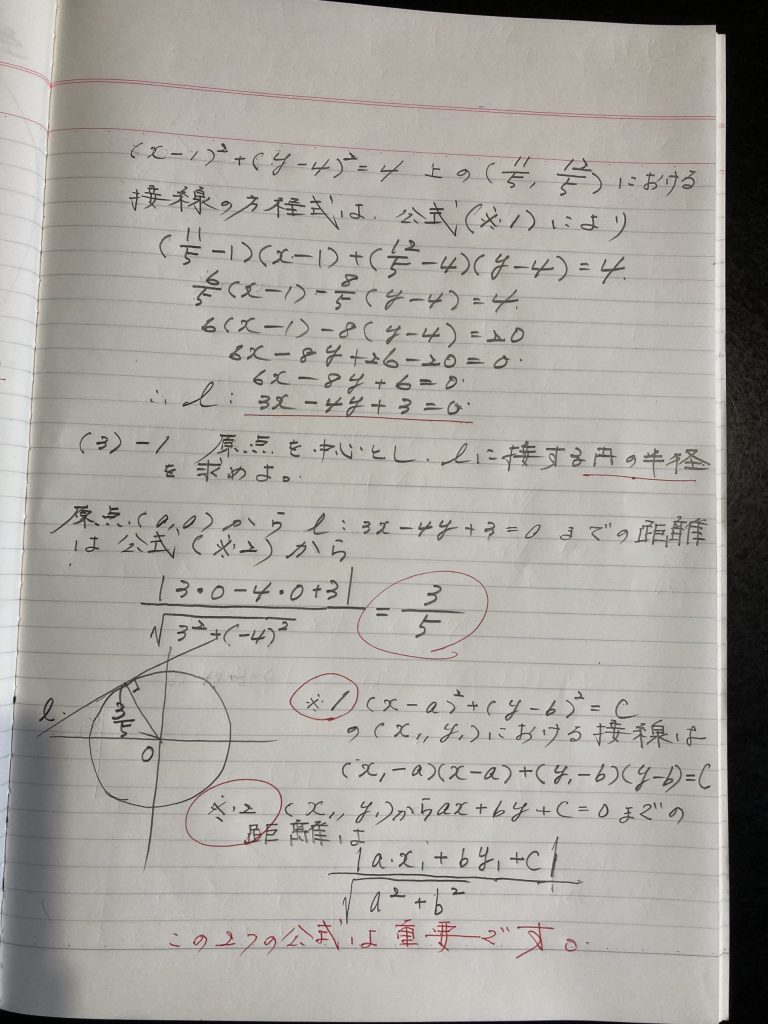 (x-1)²+(y-4)²=4 上の(11/5, 12/5)における
接線の方程式は、公式(※1)により
(11/5-1)(x-1)+(12/5-4)(y-4)=4.
6/5(x-1)-8/5(y-4)=4.
6(x-1)-8(y-4)=20
6x-8y+26-20=0.
6x-8y+6=0.
∴ l: 3x-4y+3=0.
(3)-1 原点を中心とし、lに接する円の半径
を求めよ。
原点(0,0)から l:3x-4y+3=0 までの距離
は公式(※2)から
|3・0-4・0+3|/√(3²+(-4)²) = 3/5
l.
3/5
O
※1 (x-a)²+(y-b)²=C
の(x₁, y₁)における接線は
(x₁-a)(x-a)+(y₁-b)(y-b)=C
※2 (x₁, y₁)からax+by+C=0までの
距離は
|a・x₁+by₁+C|/√(a²+b²)
この2つの公式は重要です。